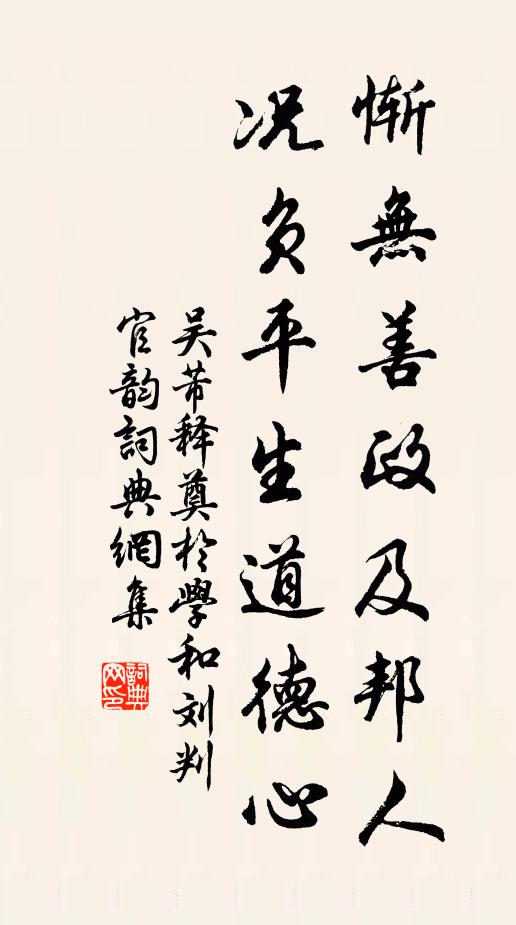 慚無善政及邦人
况负平生道德心
吴芾释奠於學和刘判
官韵詞典網集
詞典网印